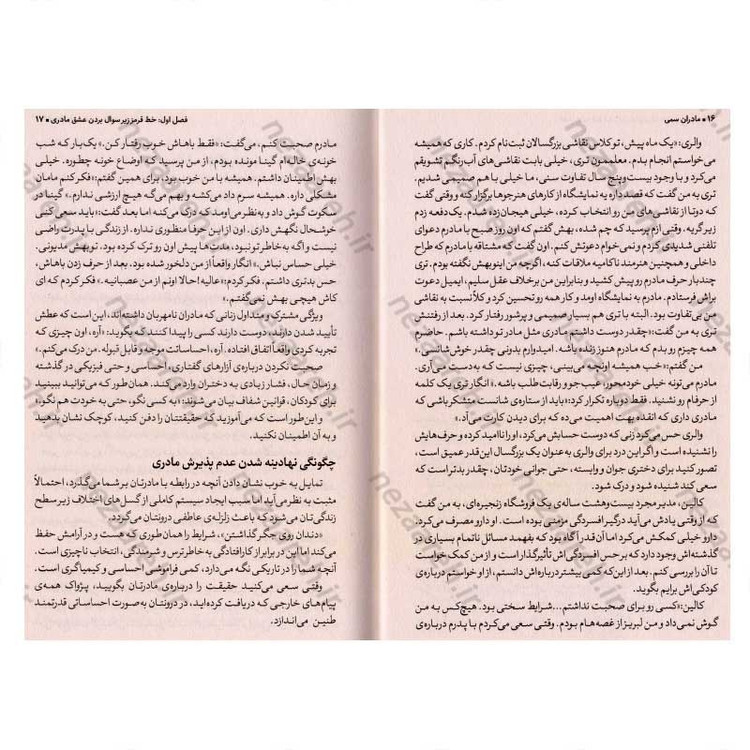 ۱۶ ■ مادران سمی
والری: «یک ماه پیش، تو کلاس نقاشی بزرگسالان ثبت‌نام کردم. کاری که همیشه
می‌خواستم انجام بدم. معلممون تری، خیلی بابت نقاشی‌های آب‌رنگم تشویقم
می‌کرد و با وجود بیست و پنج سال تفاوت سنی، ما خیلی با هم صمیمی شدیم.
تری به من گفت که قصد داره یه نمایشگاه از کارهای هنرجوها برگزار کنه و وقتی گفت
که دوتا از نقاشی‌های من رو انتخاب کرده، خیلی هیجان‌زده شدم. یک دفعه زدم
زیر گریه. وقتی ازم پرسید که چم شده، بهش گفتم که اون روز صبح با مادرم دعوای
تلفنی شدیدی کردم و نمی‌خوام دعوتش کنم. اون گفت که مشتاقه با مادرم که طراح
داخلی و همچنین هنرمند ناکامیه ملاقات کنه، اگرچه من اینو بهش نگفته بودم. تری
چند بار حرف مادرم رو پیش کشید و بنابراین من برخلاف عقل سلیم، ایمیل دعوت
براش فرستادم. مادرم به نمایشگاه اومد و کار همه رو تحسین کرد و کلاً نسبت به نقاشی
من بی‌تفاوت بود. البته با تری هم بسیار صمیمی و پرشور رفتار کرد. بعد از رفتنش
تری به من گفت: «چقدر دوست داشتم مادری مثل مادر تو داشته باشم. حاضرم
همه چیزم رو بدم که مادرم هنوز زنده باشه. امیدوارم بدونی چقدر خوش‌شانسی.»
من گفتم: «خب همیشه اونچه می‌بینی، چیزی نیست که به‌دست می‌آری.
مادرم می‌تونه خیلی خودمحور، عیب‌جو و رقابت طلب باشه.» انگار تری یک کلمه
از حرفام رو نشنید. فقط دوباره تکرار کرد: «باید از ستاره‌ی شانست متشکر باشی که
مادری داری که انقدر بهت اهمیت میده که برای دیدن کارت می‌آد.»
والری حس می‌کرد زنی که دوست حسابش می‌کرد، او را ناامید کرده و حرف‌هایش
را نشنیده است و اگر این درد برای والری به‌عنوان یک بزرگسال این قدر عمیق است،
تصور کنید برای دختری جوان و وابسته، حتی جوانی خودتان، چقدر بدتر است که
شنیده نشود و درک شود.
کالین، مدیر مجرد بیست‌وهشت ساله‌ی یک فروشگاه زنجیره‌ای، به من گفت
که از وقتی یادش می‌آید درگیر افسردگی مزمنی بوده است. او دارو مصرف می‌کرد.
دارو خیلی کمکش می‌کرد اما آن قدر آگاه بود که بفهمد مسائل ناتمام بسیاری در
گذشته‌اش وجود دارد که بر حس افسردگی‌اش تأثیرگذار است و از من کمک خواست
تا آن را بررسی کنم. بعد از این‌که کمی بیشتر درباره‌اش دانستم، از او خواستم درباره‌ی
کودکی‌اش برایم بگوید.
کالین: «کسی رو برای صحبت نداشتم... شرایط سختی بود. هیچ‌کس به من
گوش نمی‌داد و من لبریز از غصه‌هام بودم. وقتی سعی می‌کردم با پدرم درباره‌ی
فصل اول: خط قرمز زیر سوال بردن عشق مادری ■ ۱۷
مادرم صحبت کنم، می‌گفت: «فقط باهاش خوب رفتار کن.» یک‌بار که شب
خونه‌ی خاله‌ام گینا مونده بودم، از من پرسید که اوضاع خونه چطوره. خیلی
بهش اطمینان داشتم. همیشه با من خوب بود. برای همین گفتم: «فکر کنم مامان
مشکلی داره. همیشه سرم داد می‌کشه و بهم می‌گه هیچ ارزشی ندارم.» گینا در
سکوت گوش داد و به‌نظر می‌اومد که درک می‌کنه اما بعد گفت: «باید سعی کنی
خوشحال نگهش داری. اون از این حرفا منظوری نداره. از زندگی با پدرت راضی
نیست و اگه به‌خاطر تو نبود، مدت‌ها پیش اون رو ترک کرده بود. تو بهش مدیونی.
خیلی حساس نباش.» انگار واقعاً از من دلخور شده بود. بعد از حرف زدن باهاش،
حس بدتری داشتم. فکر کردم: «عالیه! حالا اونم از من عصبانیه.» فکر کردم که ای
کاش هیچی بهش نمی‌گفتم.»
ویژگی مشترک و متداول زنانی که مادران نامهربان داشته‌اند، این است که عطش
تأیید شدن دارند. دوست دارند کسی را پیدا کنند که بگوید: «آره، اون چیزی که
تجربه کردی واقعاً اتفاق افتاده. آره، احساساتت موجه و قابل قبوله. من درک می‌کنم.»
صحبت نکردن درباره‌ی آزارهای گفتاری، احساسی و حتی فیزیکی در گذشته
و زمان حال، فشار زیادی به دختران وارد می‌کند. همان‌طور که می‌توانید ببینید
برای کودکان، قوانین شفاف بیان می‌شوند: «به کسی نگو، حتی به خودت هم نگو.»
و این‌طور است که می‌آموزید که حقیقتتان را دفن کنید، کوچک نشان بدهید
و به آن اطمینان نکنید.
چگونگی نهادینه شدن عدم پذیرش مادری
تمایل به خوب نشان دادن آنچه در رابطه با مادرتان بر شما می‌گذرد، احتمالاً
مثبت به نظر می‌آید اما سبب ایجاد سیستم کاملی از گسل‌های اختلاف زیر سطح
زندگی‌تان می‌شود که باعث زلزله‌ی عاطفی درونتان می‌گردد.
«دندان روی جگر گذاشتن»، شرایط را همان‌طوری که هست و در آرامش حفظ
می‌کند اما این در برابر از کارافتادگی به خاطر ترس و شرمندگی، انتخاب ناچیزی است.
آنچه شما را در تاریکی نگه می‌دارد، کمی فراموشی احساسی و کیمیاگری است.
وقتی سعی می‌کنید حقیقت را درباره‌ی مادرتان بگویید، پژواک همه‌ی
پیام‌های خارجی که دریافت کرده‌اید، در درونتان به‌صورت احساساتی قدرتمند
طنین می‌اندازد.